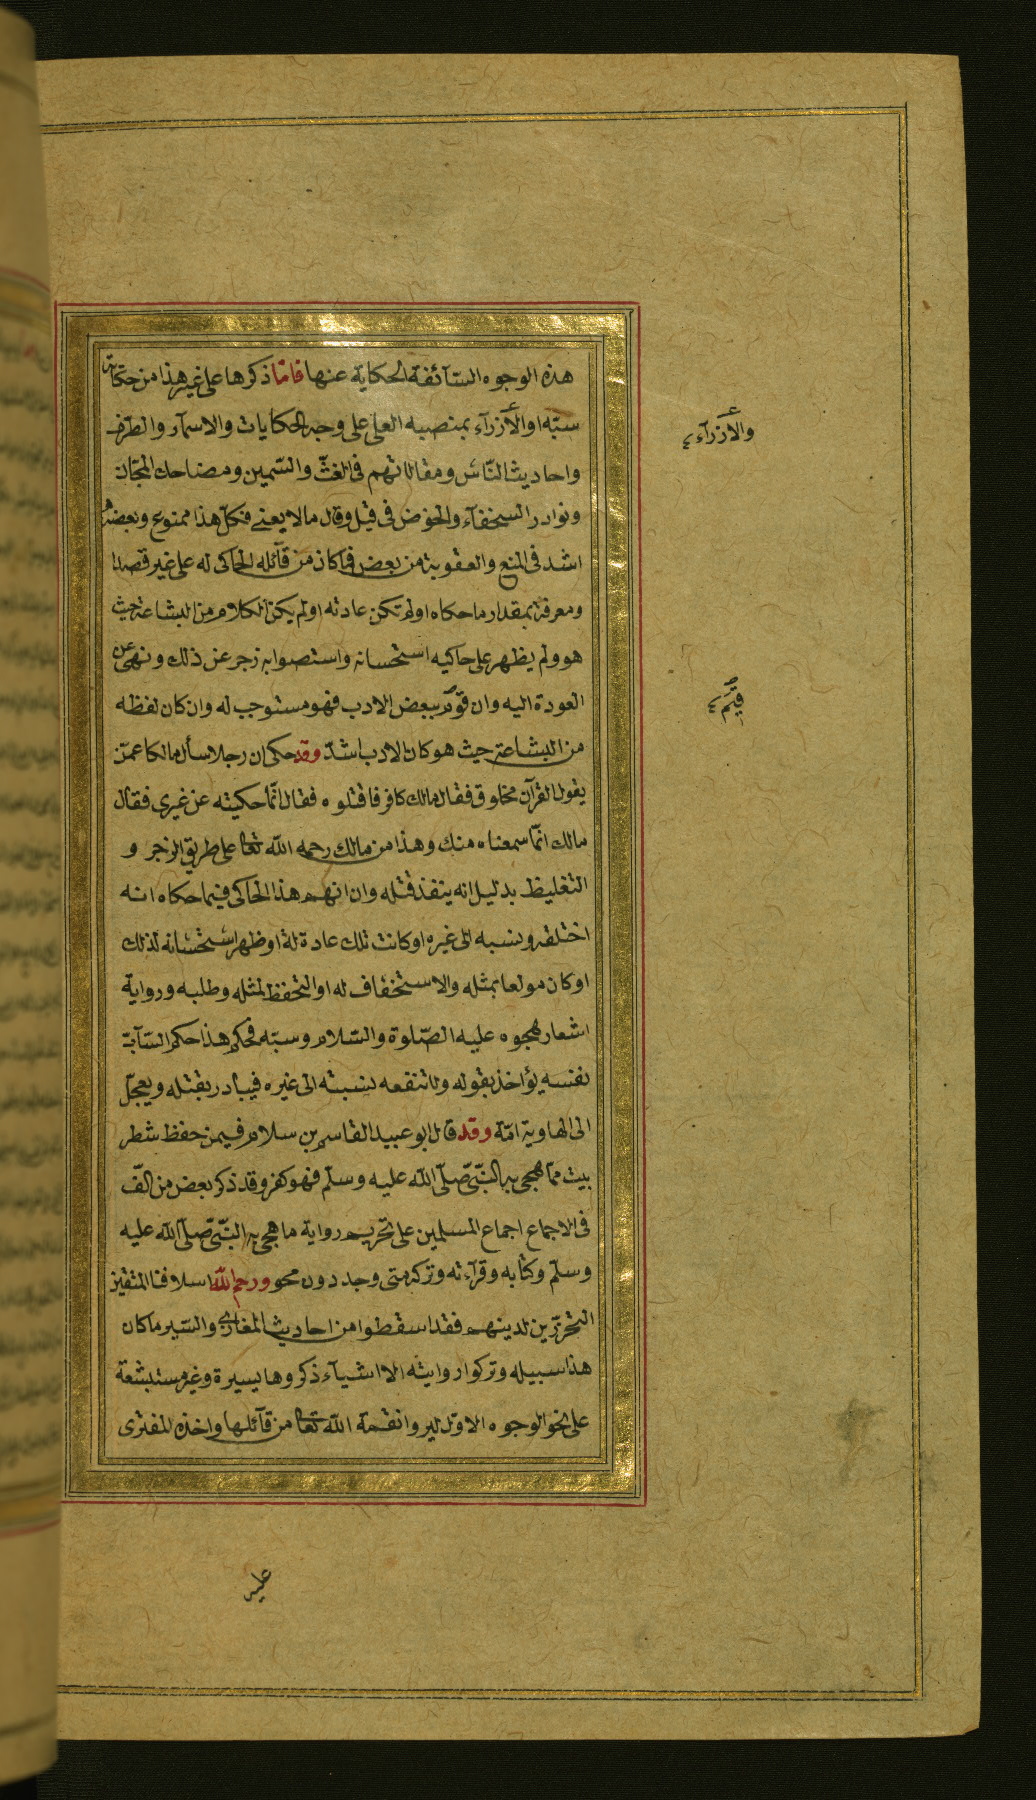 هذه الوجوه السّآئغة الحكاية عنها فامّا ذكرها على غير هذا من حكاية
سبّه او الأزرآء بمنصبه العلى على وجه الحكايات والاسمآر والطرف
واحاديث النّاس ومقالاتهم فى الغثّ والسّمين ومضاحك المجّان
ونوادر السخفآء والخوض فى قيل وقال ما لا يعنى فكلّ هذا ممنوع وبعضه
اشد فى المنع والعقوبة من بعض فما كان من قآئله الحاكى له على غير قصد
ومعرفة بمقدار ما حكاه او لم تكن عادته او لم يكن الكلام من البشاعة حيث
هو ولم يظهر على حاكيه استحسانه واستصوابه زجر عن ذلك ونهى عن
العودة اليه وان قوّم ببعض الادب فهو مستوجب له وان كان لفظه
من البشاعة حيث هو كان الادب اشدّ وقد حكى ان رجلا سأل مالكا عمّن
يقول القرآن مخلوق فقال مالك كافر فاقتلوه فقال انّما حكيته عن غيرى فقال
مالك انّما سمعناه منك وهذا من مالك رحمه الله تعا على طريق الزجر و
التغليظ بدليل انه ينفذ قتله وان اتهم هذا الحاكى فيما حكاه انه
اختلقه ونسبه الى غيره او كانت تلك عادة له او ظهر استحسانه لذلك
او كان مولعا بمثله والاستخفاف له او التحفظ لمثله وطلبه ورواية
اشعار هجوه عليه الصّلوة والسّلام وسبّه فحكم هذا حكم السّآبّ
نفسه يؤاخذ بقوله ولا تنفعه نسبته الى غيره فيبادر بقتله ويعجّل
الى الهاوية امّه وقد قال ابو عبيد القاسم بن سلام فيمن حفظ شطر
بيت ممّا هجى به النّبىّ صلّى الله عليه وسلّم فهو كفر وقد ذكر بعض من الّف
فى الاجماع اجماع المسلمين على تحريم رواية ما هجى به النّبىّ صلّى الله عليه
وسلّم وكتابه وقرآءته وتركه متى وجد دون محو ورحم الله اسلافنا المتقين
المتحرّزين لدينهم فقد اسقطوا من احاديث المغازى والسّير ما كان
هذا سبيله وتركوا روايته الا اشيآء ذكروها يسيرة وغير مستبشعة
على نحو الوجوه الاول ليروا نقمة الله تعا من قآئلها واخذه المفترى
والأزرآء
قيّم
عليه